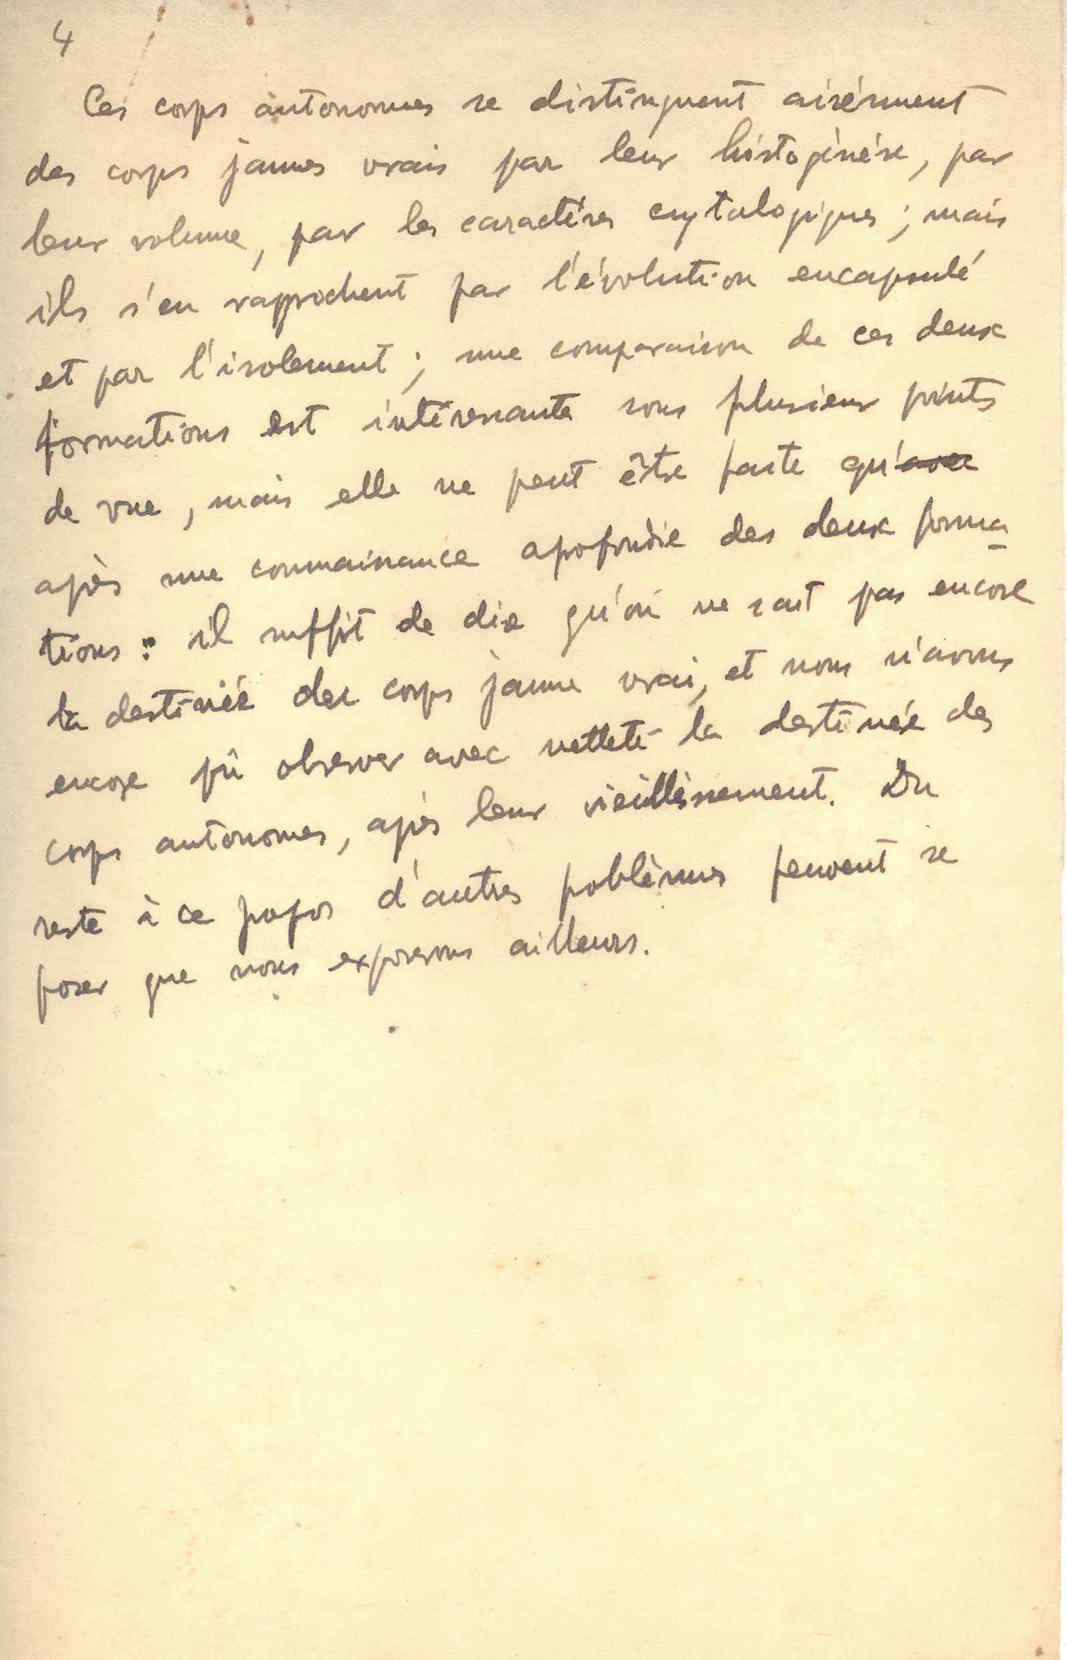 4
Ces corps autonomes se distinguent aisément
des corps jaunes vrais par leur histogénèse, par
leur volume, par les caractères cytologiques ; mais
ils s'en rapprochent par l'évolution encapsulé
et par l'isolement ; une comparaison de ces deux
formations est intéressante sous plusieur points
de vue, mais elle ne peut être faite qu'avec
après une connaissance apofondie des deux forma-
tions : il suffit de dire qu'on ne sait pas encore
la destinée du corps jaune vrai, et nous n'avons
encore pû observer avec netteté la destinée des
corps autonomes, après leur vieillissement. Du
reste à ce propos d'autres problèmes peuvent se
poser que nous exposerons ailleurs.